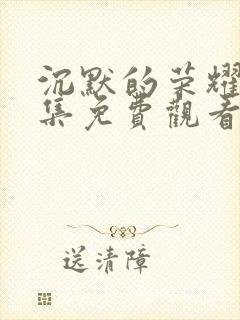 沉默的荣耀
集免費觀看
送清障